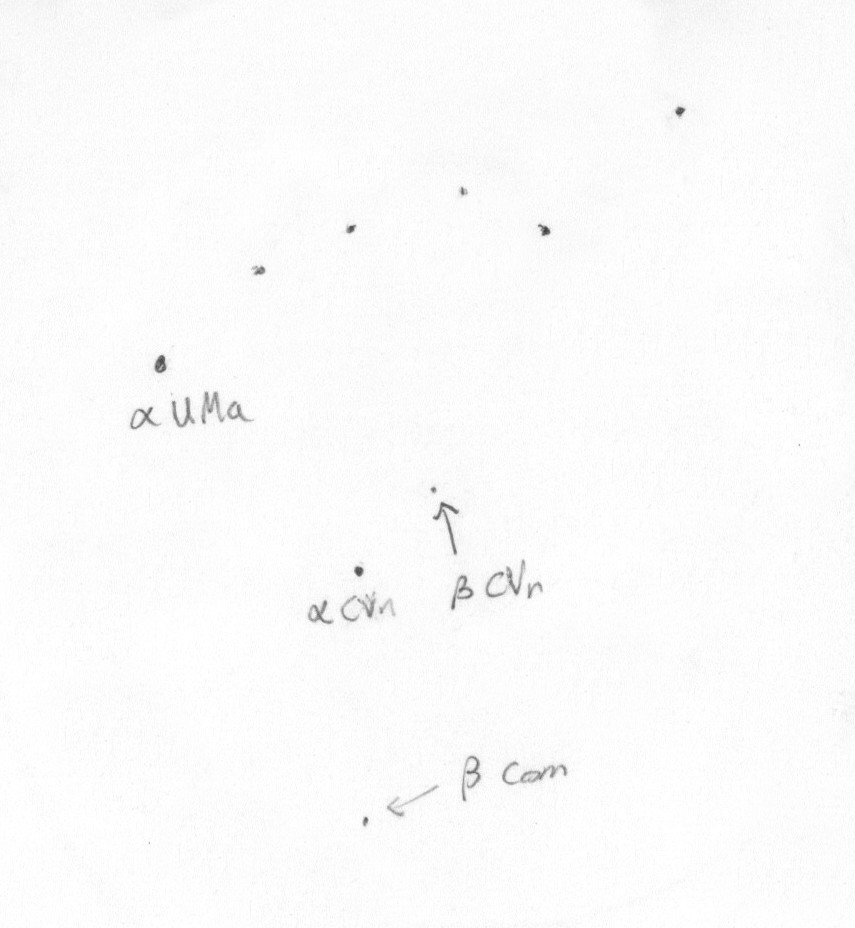 α UMa
β CVn
α CVn
β Com